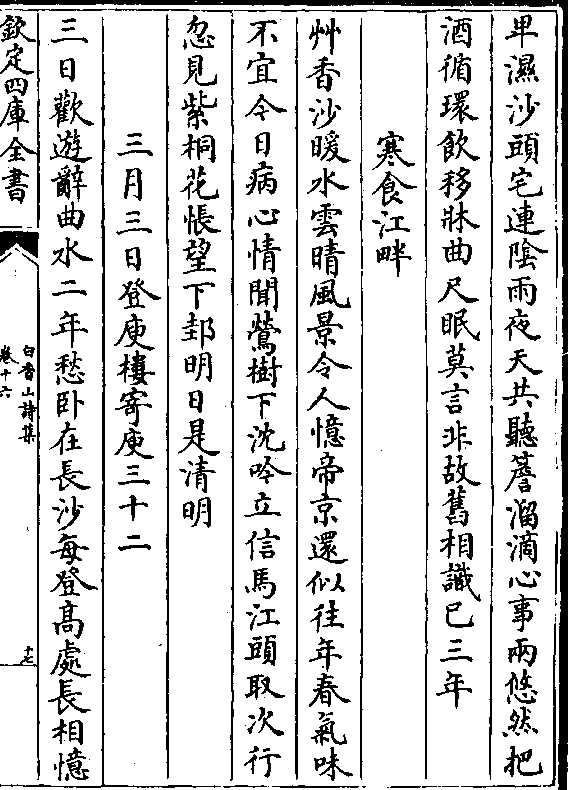 卑濕沙頭宅連陰雨夜天共聽簷溜滴心事兩悠然把
酒循環飲移牀曲尺眠莫言非故舊相識已三年
寒食江畔
艸香沙暖水雲晴風景令人憶帝京還似往年春氣味
不宜今日病心情聞鶯樹下沈吟立信馬江頭取次行
忽見紫桐花悵望下邽明日是清明
三月三日登庾樓寄庾三十二
三日歡遊辭曲水二年愁卧在長沙每登髙處長相憶
欽定四庫全書
白香山詩集
卷十六
十七